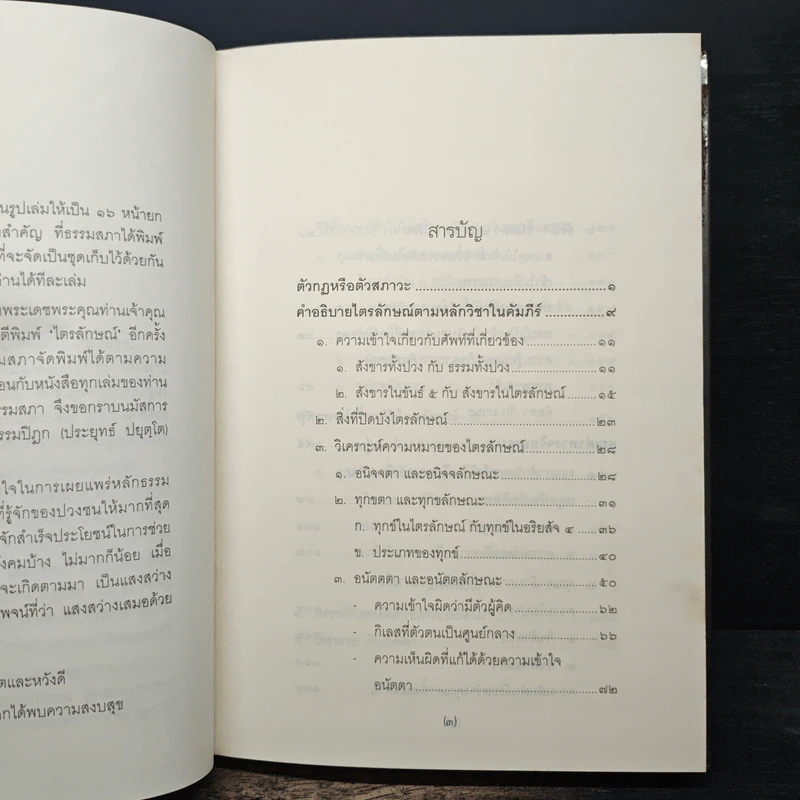 นรูปเล่มให้เป็น ๑๖ หน้ายก
สำคัญ ที่ธรรมสภาได้พิมพ์
ที่จะจัดเป็นชุดเก็บไว้ด้วยกัน
่านได้ทีละเล่ม
พระเดชพระคุณท่านเจ้าคุณ
ตีพิมพ์ "ไตรลักษณ์" อีกครั้ง
มสภาจัดพิมพ์ได้ตามความ
อนกับหนังสือทุกเล่มของท่าน
รรมสภา จึงขอกราบนมัสการ
รรมปิฎก (ประยุทธ์ ปยุตฺโต)
ใจในการเผยแพร่หลักธรรม
ที่รู้จักของปวงชนให้มากที่สุด
จักสำเร็จประโยชน์ในการช่วย
ังคมบ้าง ไม่มากก็น้อย เมื่อ
จะเกิดตามมา เป็นแสงสว่าง
พจน์ที่ว่า แสงสว่างเสมอด้วย
ตและหวังดี
กได้พบความสงบสุข
สารบัญ
ตัวกฎหรือตัวสภาวะ ๑
คำอธิบายไตรลักษณ์ตามหลักวิชาในคัมภีร์ ๙
๑. ความเข้าใจเกี่ยวกับศัพท์ที่เกี่ยวข้อง ๑๑
๑. สังขารทั้งปวง กับ ธรรมทั้งปวง ๑๑
๒. สังขารในขันธ์ ๕ กับ สังขารในไตรลักษณ์ ๑๕
๒. สิ่งที่ปิดบังไตรลักษณ์ ๒๓
๓. วิเคราะห์ความหมายของไตรลักษณ์ ๒๘
๑. อนิจจตา และอนิจจลักษณะ ๒๘
๒. ทุกขตา และทุกขลักษณะ ๓๑
ก. ทุกข์ในไตรลักษณ์ กับทุกข์ในอริยสัจ ๔ ๓๖
ข. ประเภทของทุกข์ ๔๐
๓. อนัตตตา และอนัตตลักษณะ ๕๐
- ความเข้าใจผิดว่ามีตัวผู้คิด ๖๒
- กิเลสที่ตัวตนเป็นศูนย์กลาง ๖๖
- ความเห็นผิดที่แก้ได้ด้วยความเข้าใจ
อนัตตา ๗๒
(๓)